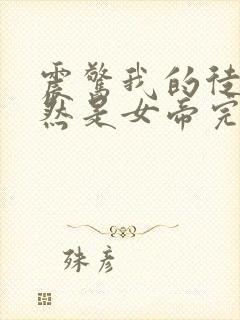 震惊我的徒
然是女帝完
殊彦